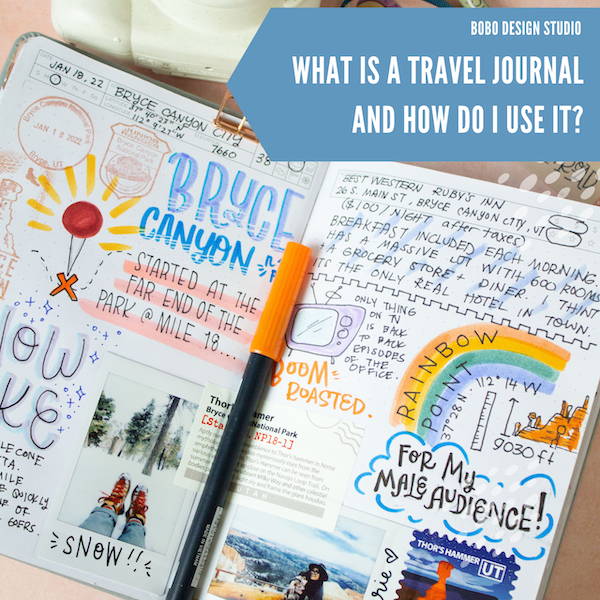 BOBO DESIGN STUDIO
WHAT IS A TRAVEL JOURNAL
AND HOW DO I USE IT?
JAN 18, 22
BRYCE CANYON CITY
37° 40' 23" N
112° 9' 21" W
7660
38
JAN 18 2022
Bryce, UT
JUNIOR
BRYCE
CANYON
STARTED AT THE
FAR END OF THE
PARK @ MILE 18...
SNOW!!
Thor's Hammer
National Park
NP18-1]
BEST WESTERN RUBY'S INN
26 S. MAIN ST, BRYCE CANYON CITY, UT
($100/NIGHT after taxes)
BREAKFAST INCLUDED EACH MORNING.
HAS A MASSIVE LOT WITH 600 ROOMS
A GROCERY STORE + DINER. I THINK
ITS THE ONLY REAL HOTEL IN TOWN.
ONLY THING
ON TV
IS BACK
TO BACK
EPISODES
OF THE
OFFICE.
ROASTED.
RAINBOW
POINT
112° 14' W
9030 ft
FOR MY
MALE AUDIENCE!
THOR'S HAMMER
UT